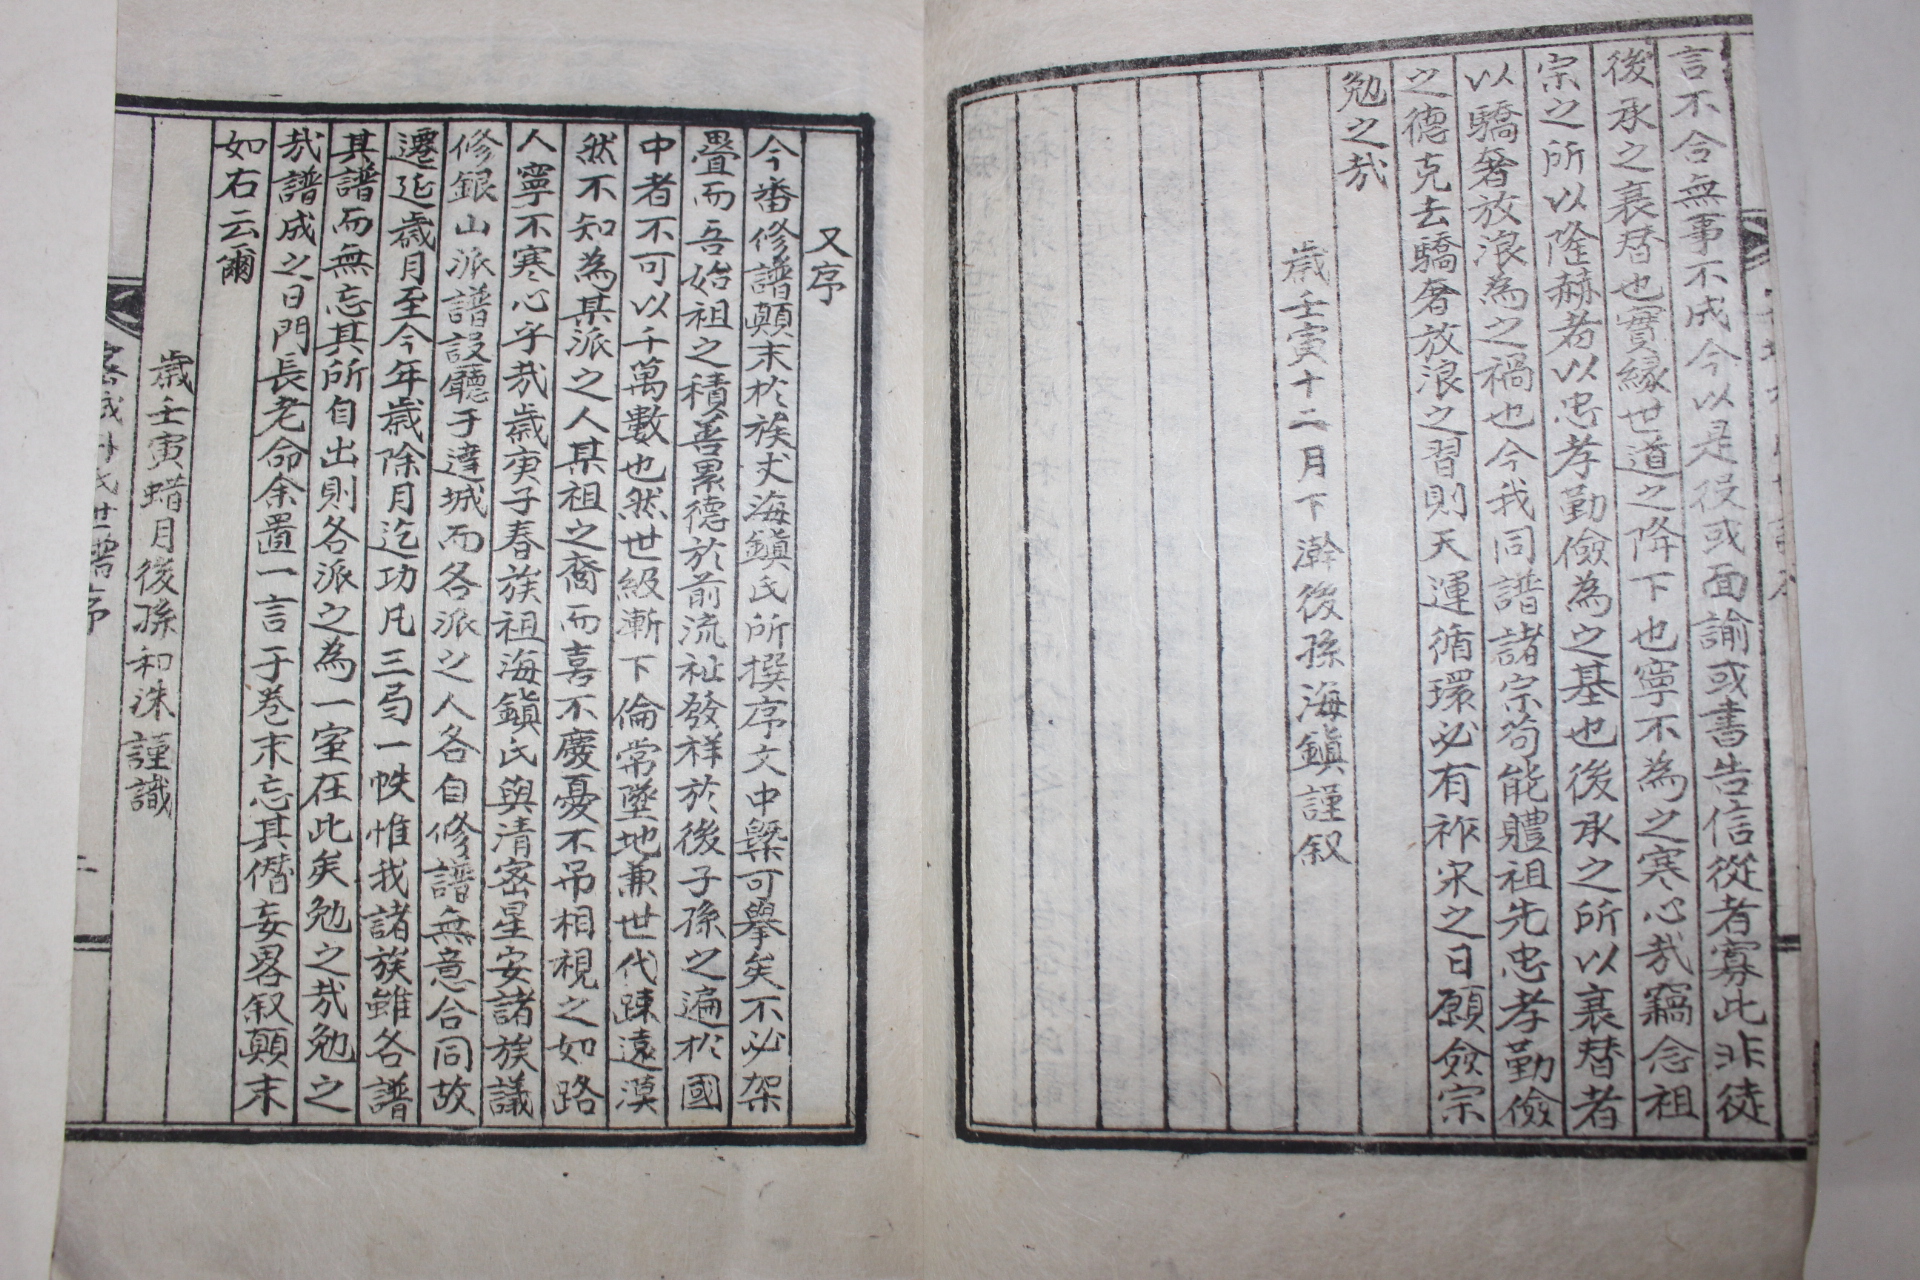 言不合無事不成今以是役或面諭或書告信從者寡此非徒
後承之衰替也實緣世道之降下也寧不為之寒心哉竊念祖
宗之所以隆赫者以忠孝勤儉為之基也後承之所以衰替者
以驕奢放浪為之禍也今我同譜諸宗苟能體祖先忠孝勤儉
之德克去驕奢放浪之習則天運循環必有祚宋之日願僉宗
勉之哉
歲壬寅十二月下澣後孫海鎭謹叙
又序
今番修譜顛末於族丈海鎭氏所撰序文中槩可擧矣不必架
疊而吾始祖之積善累德於前流祉發祥於後子孫之遍於國
中者不可以千萬數也然世級漸下倫常墜地兼世代踈遠漠
然不知為某派之人某祖之裔而喜不慶憂不吊相視之如路
人寧不寒心乎哉歲庚子春族祖海鎭氏與清密星安諸族議
修銀山派譜設廳于達城而各派之人各自修譜無意合同故
遷延歲月至今年歲除月迄功凡三局一帙惟我諸族雖各譜
其譜而無忘其所自出則各派之為一室在此矣勉之哉勉之
哉譜成之日門長老命余置一言于卷末忘其僭妄畧叙顛末
如右云爾
歲壬寅蜡月後孫和洙謹識
氏世譜序
二